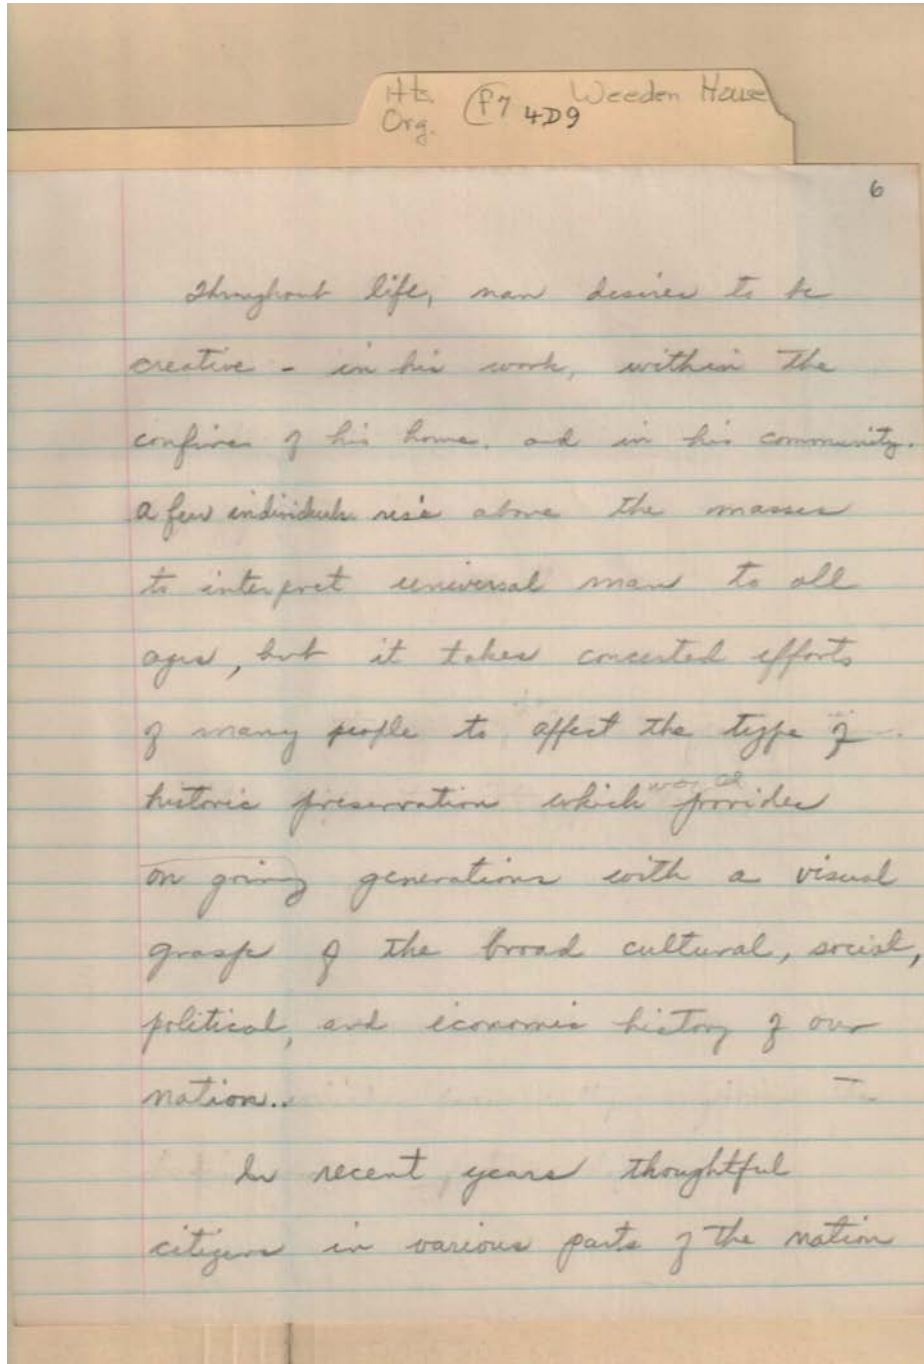 Hts. (f7 4D9 Weeden House
Org.
6
Throughout life, man desires to be
creative - in his work, within the
confines of his home, and in his community.
A few individuals rise above the masses
to interpret universal man to all
ages, but it takes concerted efforts
of many people to affect the type of
historic preservation which provides
on going generations with a visual
grasp of the broad cultural, social,
political, and economic history of our
nation..
In recent years thoughtful
citizens in various parts of the nation